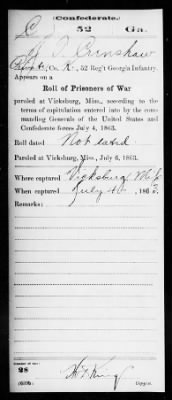 (Confederate.)
C 52 Ga.
J. T. Crenshaw
Co. K., 52 Reg't Georgia Infantry.
Appears on a
Roll of Prisoners of War
paroled at Vicksburg, Miss., according to the
terms of capitulation entered into by the com
manding Generals of the United States and
Confederate forces July 4, 1863.
Roll dated Not dated.
Paroled at Vicksburg, Miss., July 6, 1863.
Where captured Vicksburg Miss
When captured July 4, 1863.
Remarks:
Number of roll:
28
Copyist.